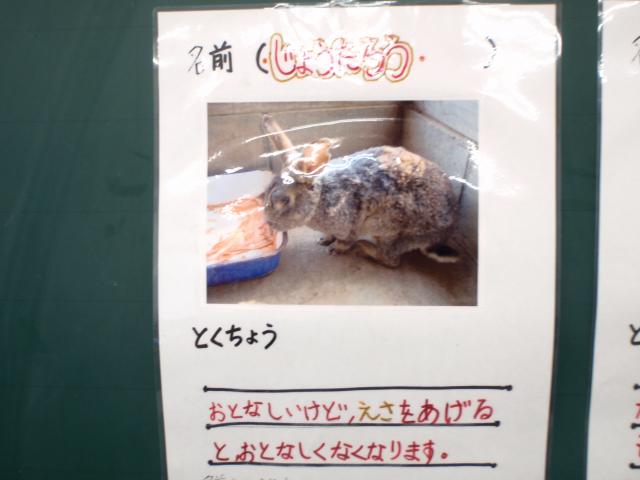 名前（・じょうたろう・　）
とくちょう
おとなしいけど、えさをあげる
と、おとなしくなくなります。